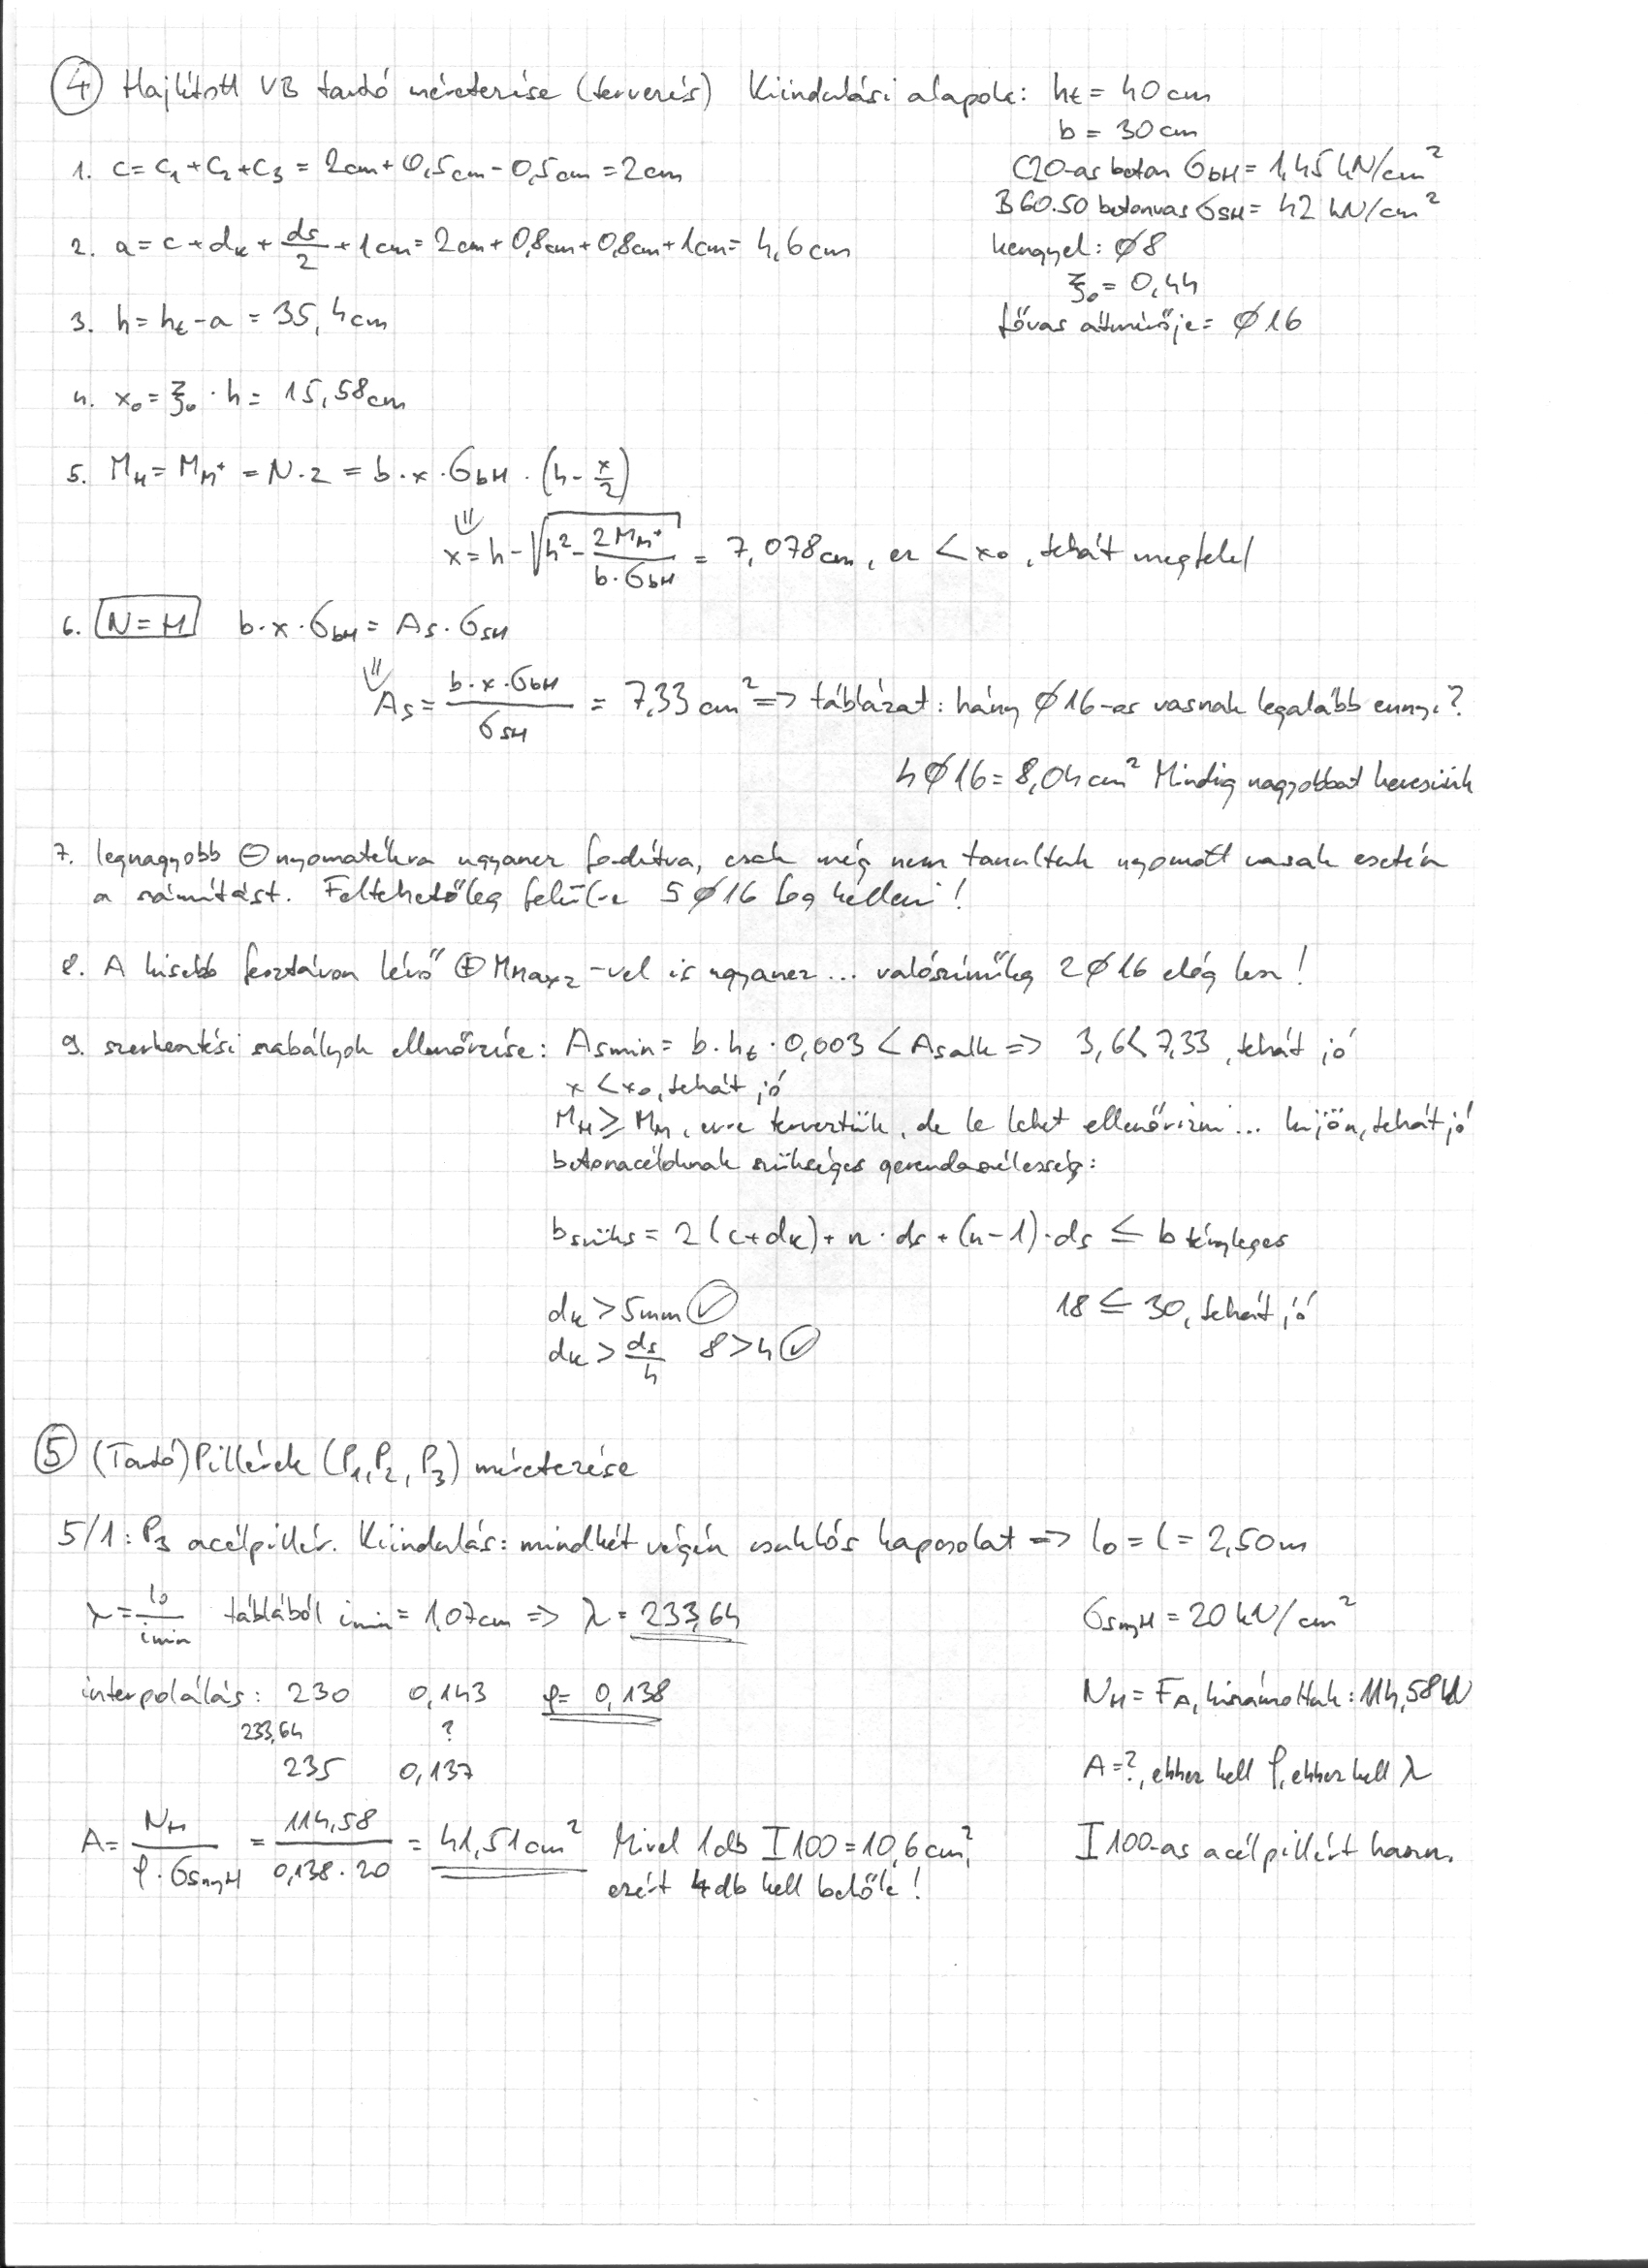 ④ Hajlított VB tartó méretezése (tervezés) Kiindulási alapok: ht = 40 cm
b = 30 cm
1. c = c1 + c2 + c3 = 2cm + 0,5cm - 0,5cm = 2cm
C20-as beton σbH = 1,45 kN/cm²
B60.50 betonvas σSH = 42 kN/cm²
2. a = c + dk + ds/2 + 1cm = 2cm + 0,8cm + 0,8cm + 1cm = 4,6cm
kengyel: ∅8
ξo = 0,44
3. h = ht - a = 35,4cm
fővas átmérője = ∅16
4. xo = ξo · h = 15,58cm
5. MH = MM+ = N·z = b·x·σbH · (h - x/2)
⇓
x = h - √(h² - 2MM+/(b·σbH)) = 7,078cm, ez < xo, tehát megfelel
6. N = H b·x·σbH = As·σSH
⇓
As = b·x·σbH/σSH = 7,33 cm² => táblázat: hány ∅16-os vasnak legalább ennyi?
4∅16 = 8,04cm² Mindig nagyobbat keresünk
7. legnagyobb ⊖ nyomatékra ugyanez fordítva, csak még nem tanultuk nyomott vasak esetén
a számítást. Feltehetőleg felülre 5∅16 fog kelleni!
8. A kisebb fesztávon lévő ⊕ Mmax2 -vel is ugyanez... valószínűleg 2∅16 elég lesz!
9. szerkesztési szabályok ellenőrzése: Asmin = b·ht·0,003 < Asalk => 3,6 < 7,33, tehát jó
x < xo, tehát jó
MH ≥ MM, erre terveztük, de le lehet ellenőrizni... kijön, tehát jó
betonacéloknak szükséges gerendaszélesség:
bszüks = 2(c+dk) + n·ds + (n-1)·ds ≤ b tényleges
dk > 5mm ✓
18 ≤ 30, tehát jó
dk > ds/4 8 > 4 ✓
⑤ (Tartó)Pillérek (P1, P2, P3) méretezése
5/1: P3 acélpillér. Kiindulás: mindkét végén csuklós kapcsolat => lo = l = 2,50m
λ = lo/imin táblából imin = 1,07cm => λ = 233,64
σSnyH = 20 kN/cm²
interpolálás: 230 0,143 φ = 0,138
NH = FA, kiszámoltuk: 114,58kN
233,64 ?
235 0,137
A = ?, ehhez kell φ, ehhez kell λ
A = NH/(φ·σSnyH) = 114,58/(0,138·20) = 41,51cm² Mivel 1db I100 = 10,6cm²,
I100-as acélpillért haszn.
ezért 4db kell belőle!